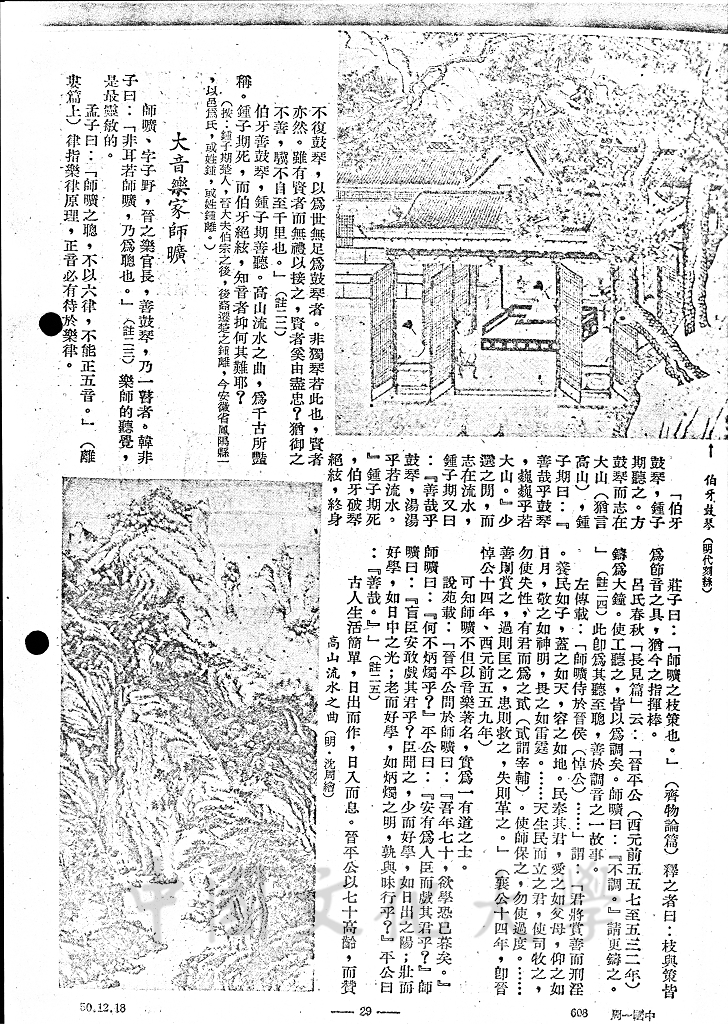 「伯牙
鼓琴，鍾子
期聽之。方
鼓琴而志在
大山（猶言
高山），鍾
子期曰：『
善哉乎鼓琴
，巍巍乎若
大山。』少
選之間，而
志在流水，
鍾子期又曰
：『善哉乎
鼓琴，湯湯
乎若流水。
』鍾子期死
，伯牙破琴
絕絃，終身
不復鼓琴，以為世無足為鼓琴者。非獨琴若此也，賢者
亦然。雖有賢者而無禮以接之，賢者奚由盡忠？猶御之
不善，驥不自至千里也。」（註二二）
伯牙善鼓琴，鍾子期善聽。高山流水之曲，為千古所豔
稱。鍾子期死，而伯牙絕絃，知音者抑何其難耶？
（按：鍾子期楚人，晉大夫伯宗之後，後裔遷楚之鍾離，今安徽省鳳陽縣
，以邑為氏，或姓鍾，或姓鍾離。）
大音樂家師曠
師曠、字子野，晉之樂官長，善鼓琴，乃一瞽者。韓非
子曰：「非耳若師曠，乃為聰也。」（註二三）樂師的聽覺，
是最靈敏的。
孟子曰：「師曠之聰，不以六律，不能正五音。」（離
婁篇上）律指樂律原理，正音必有待於樂律。
莊子曰：「師曠之枝策也。」（齊物論篇）釋之者曰：枝與策皆
為節音之具，猶今之指揮棒。
呂氏春秋「長見篇」云：「晉平公（西元前五五七至五三二年）
鑄為大鐘。使工聽之，皆以為調矣。師曠曰：『不調。』請更鑄之。
」（註二四）此卽為其聽至聰，善於調音之一故事。
左傳載：「師曠侍於晉侯（悼公）……」謂：「君將賞善而刑淫
。養民如子，蓋之如天，容之如地。民奉其君，愛之如父母，仰之如
日月，敬之如神明，畏之如雷霆。……天生民而立之君，使司牧之，
勿使失性，有君而為之貳（貳謂宰輔）。使師保之，勿使過度。……
善則賞之，過則匡之，患則救之，失則革之。」（襄公十四年，卽晉
悼公十四年、西元前五五九年）
可知師曠不但以音樂著名，實為一有道之士。
說苑載：「晉平公問於師曠曰：『吾年七十，欲學恐已暮矣。』
師曠曰：『何不炳燭乎？』平公曰：『安有為人臣而戲其君乎？』師
曠曰：『盲臣安敢戲其君乎？臣聞之，少而好學，如日出之陽；壯而
好學，如日中之光；老而好學，如炳燭之明，孰與昧行乎？』平公曰
：『善哉。』」（註二五）
古人生活簡單，日出而作，日入而息。晉平公以七十高齡，而贊
↑伯牙鼓琴（明代刻絲）
高山流水之曲（明・沈周繪）
中國文化大學
50.12.18
— 29 —
608
中國一周